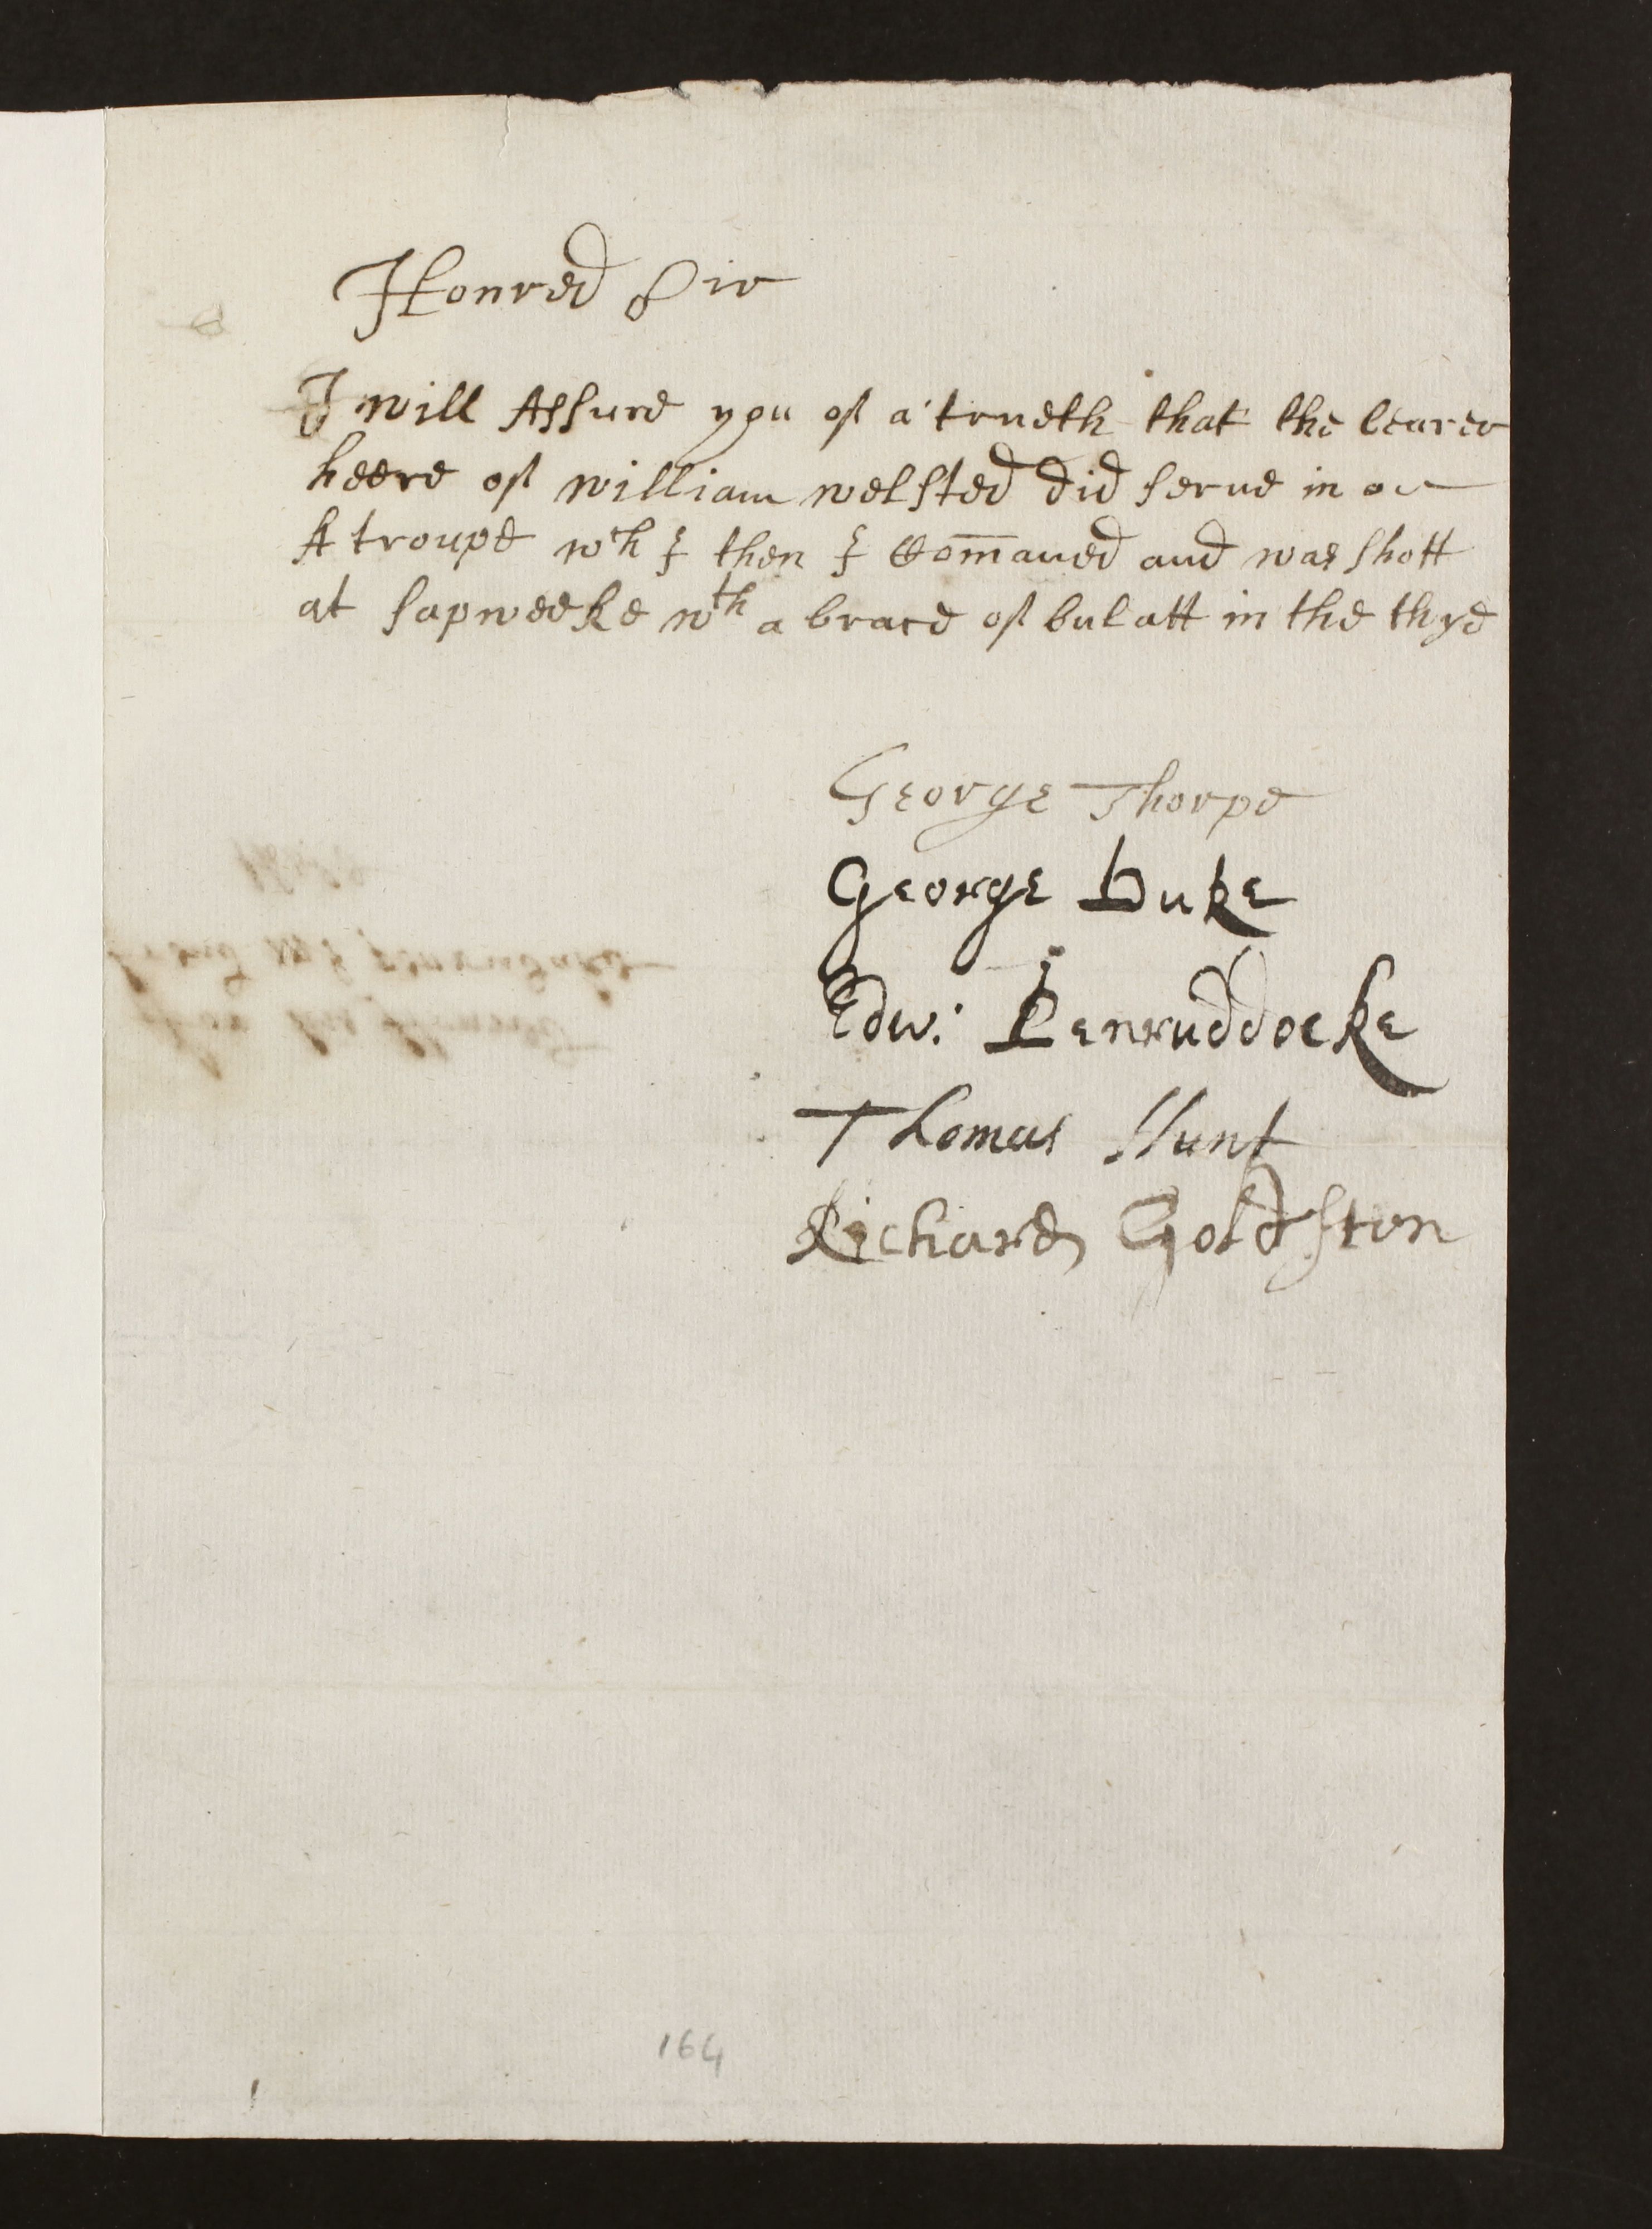 Honred Sir
I will Assure you of a trueth that the bearer
heere of william welsted did serue in
A troupe wth I then I Com̄aned and was shott
at sapweeke wth a brace of bulatt in the thye
George Thorpe
George Duke
Edw: Penruddocke
Thomas Hunt
Richard Goldston
164